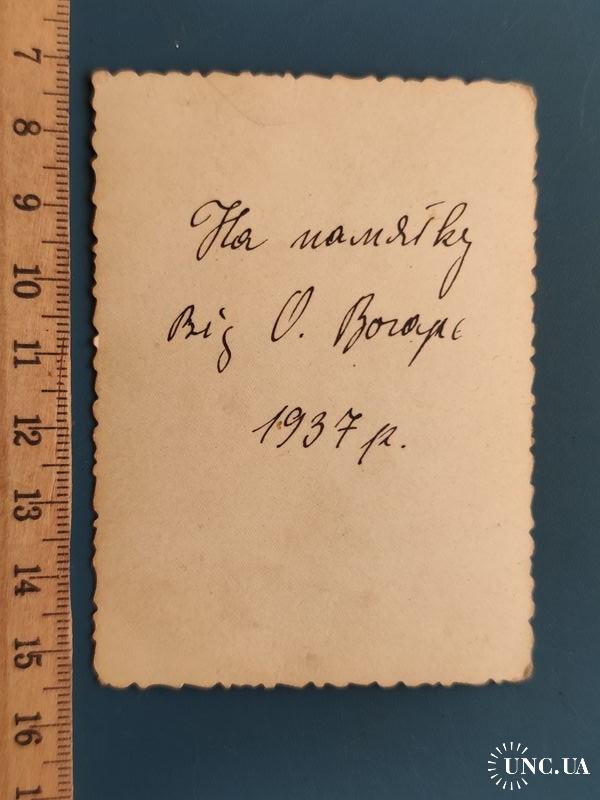 На памятку
від О.
1937 р.
7
8
9
10
11
12
13
14
15
16
UNC.UA